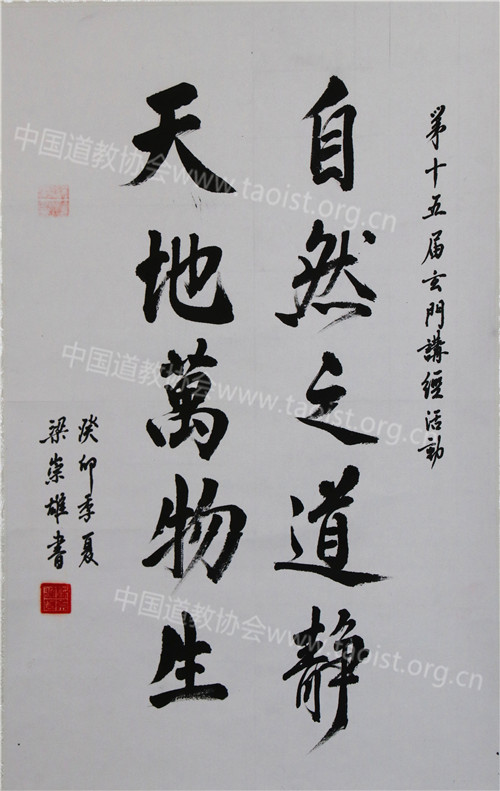 第十五届玄門講經活動
自然之道静
天地萬物生
癸卯季夏
梁崇雄書
中国道教协会www.taoist.org.cn
中国道教协会www.taoist.org.cn
中国道教协会www.taoist.org.cn